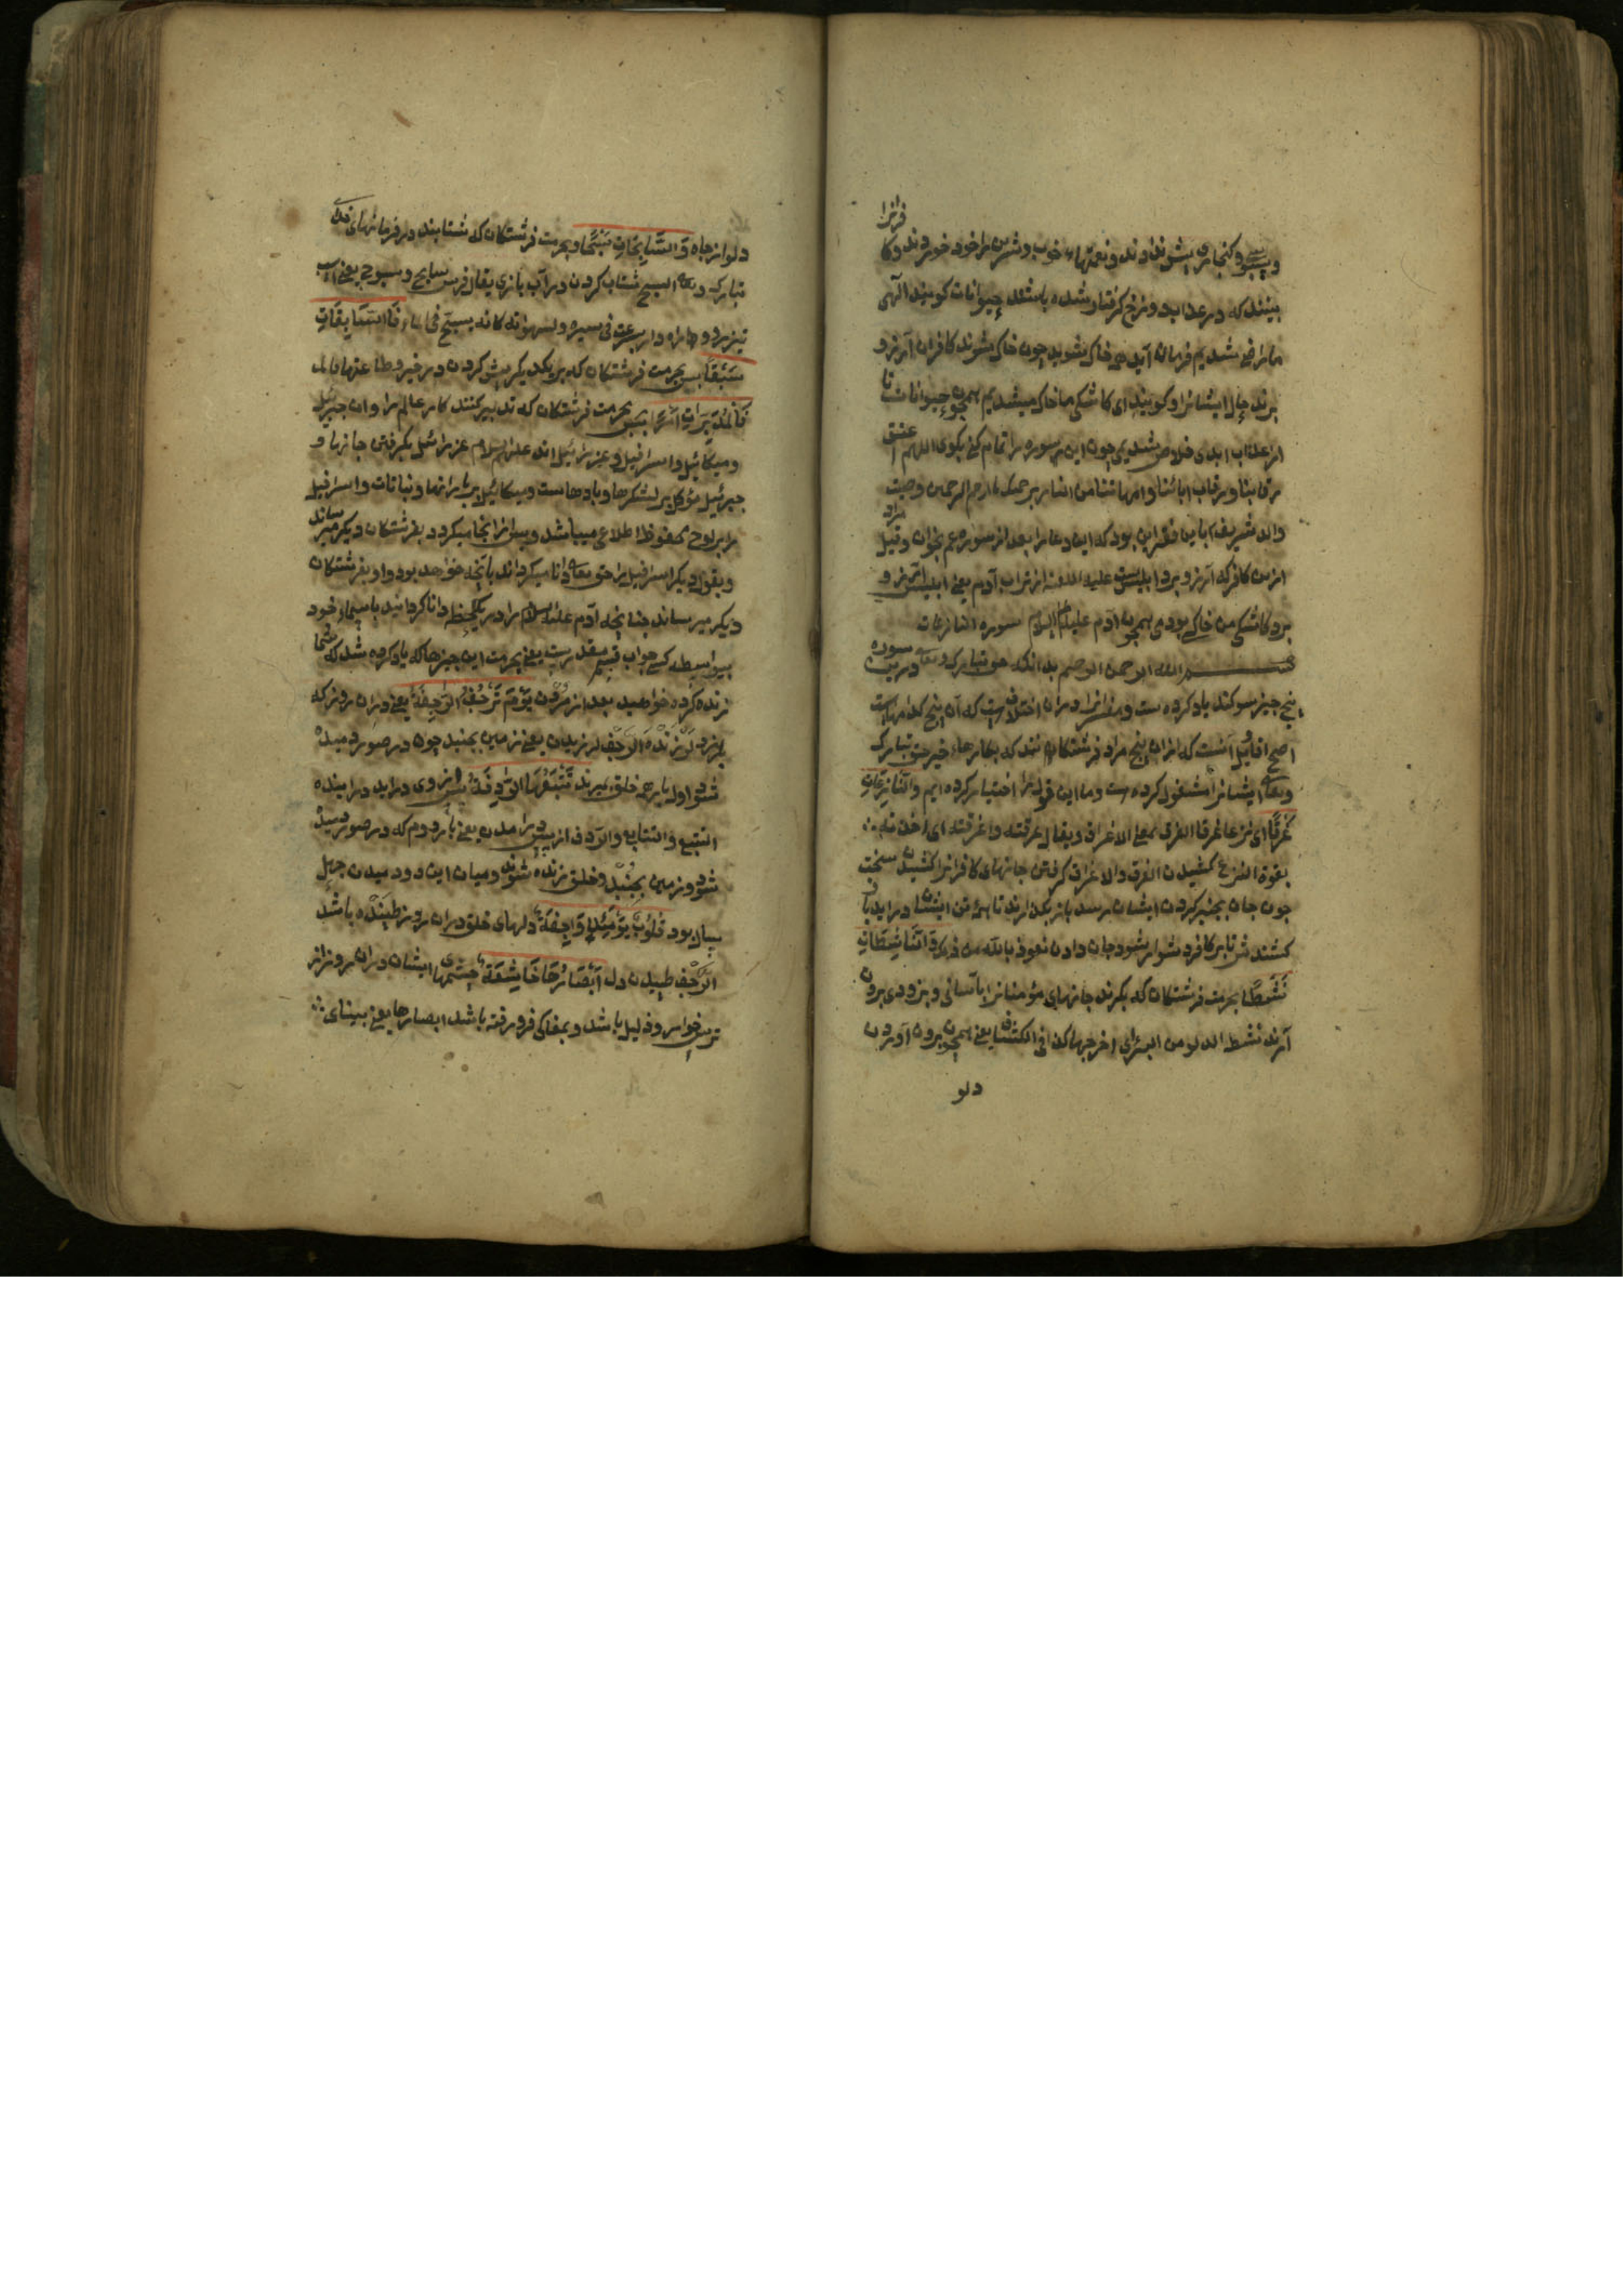 بینند که در عذاب دوزخ گرفتار شده باشند حیوانات گویند الهی
ما راضی شدیم فرمان آید که خاک بشوید چون خاک بشوند کافران آرزو
برند حال ایشانرا و گویند ای کاشکی ما خاک میشدیم همچون حیوانات تا
از عذاب ابدی خلاص شدیمی چون این سوره را تمام کنی بگوی اللهم اعتق
رقابنا و رقاب ابائنا و امهاتنا من النار برحمتک یا ارحم الرحمین وصیت
والد شریف باین فقیر این بود که این دعا را بعد از سوره عم بخوان و قیل مراد
ازین کافر که آرزو برد ابلیس است علیه اللعنة از تراب آدم یعنی ابلیس آرزو
برد کاشکی من خاکی بودمی همچون آدم علیه السلام سوره النازعات
بسم الله الرحمن الرحیم بدانکه حق تبارک و تعالی درین سوره
پنج چیز سوگند یاد کرده است و مفسرانرا دران اختلافست که آن پنج کدامهاست
اصح اقاویل آنست که ازان پنج مراد فرشتگان‌اند که بکارهاء خیر حق تبارک
و تعالی ایشانرا مشغول کرده است و ما این قول را اختیار کرده ایم والنازعات
غرقا ای نزعا غرقا الغرق بمعنی الاغراق و یقال غرقته و اغرقته ای اخذته
بقوة النزع کشیدن الغرق والاغراق گرفتن جانهای کافرانرا کشیدن سخت
چون جان بچنبر گردن ایشان رسد باز بگذارند تا بهمه تن ایشان در آید باز
کشندش تا بر کافر دشوار بشود جان دادن نعوذ بالله من ذلک والناشطات
نشطا بحرمت فرشتگان که بگیرند جانهای مؤمنانرا بآسانی و بزودی برون
آرند نشط الدلو من البئر ای اخرجها کذا فی الکشاف یعنی همچون برون آوردن
دلو
دلو از چاه والسابحات سبحا و بحرمت فرشتگان که شتابند در فرمانهای خدای
تبارک و تعالی السبح شتاب کردن در آب بازی یقال فرس سابح و سبوح یعنی اسب
سبقا پس بحرمت فرشتگان که بر یکدیگر پیشی کردن در خیر و طاعتها
فالمدبرات امرا پس بحرمت فرشتگان که تدبیر کنند کار عالم را و ان جبرئیل
و میکائیل و اسرافیل و عزرائیل اند علیهم السلام عزرائیل بگرفتن جانها و
جبرئیل مؤکل بر لشکرها و بادهاست و میکائیل بر بارانها و نباتات و اسرافیل
را بر لوح محفوظ اطلاع میباشد و پس ازانجا میگیرد و بفرشتگان دیگر میرساند
و بقول دیگر اسرافیل را حق تعالی دانا میگرداند بآنچه خواهد بود و او بفرشتگان
دیگر میرساند چنانچه آدم علیه السلام را در یک لحظه دانا گردانید باسماء خود
بیواسطه کسی جواب قسم مقدرست یعنی بحرمت این چیزها که یاد کرده شد که شما
زنده کرده خواهید بعد از مردن یوم ترجف الراجفة یعنی دران روز که
بلرزد لرزنده الرجف لرزیدن یعنی زمین بجنبد چون در صور دمیده
شود اول بار همه خلق بمیرند تتبعها الرادفة پس از وی در آید در آینده
التبع والتتابع والردف از پس در امدن یعنی بار دوم که در صور دمیده
شود و زمین بجنبد و خلق زنده شوند و میان این دو دمیدن چهل
سال بود قلوب یومئذ واجفة دلهای خلق دران روز طپنده باشد
الوجف طپیدن دل ابصارها خاشعة چشمهای ایشان دران روز از
ترس خوار و ذلیل باشد و بمغاکی فرو رفته باشد ابصارها یعنی بینای